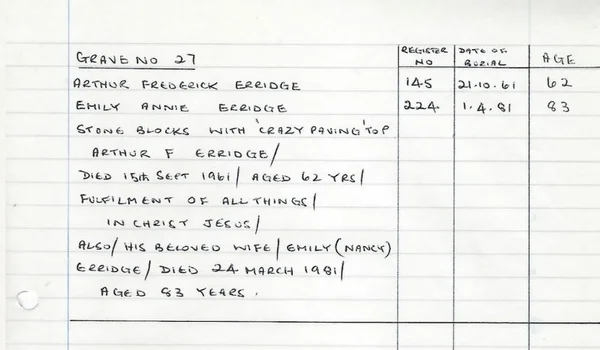 GRAVE NO 27 REGISTER NO DATE OF BURIAL AGE
ARTHUR FREDERICK ERRIDGE 145 21.10.61 62
EMILY ANNIE ERRIDGE 224 1.4.81 83
STONE BLOCKS WITH 'CRAZY PAVING' TOP
ARTHUR F ERRIDGE/
DIED 15th SEPT 1961/ AGED 62 YRS/
FULFILMENT OF ALL THINGS/
IN CHRIST JESUS/
ALSO/ HIS BELOVED WIFE/ EMILY (NANCY)
ERRIDGE/ DIED 24 MARCH 1981/
AGED 83 YEARS.